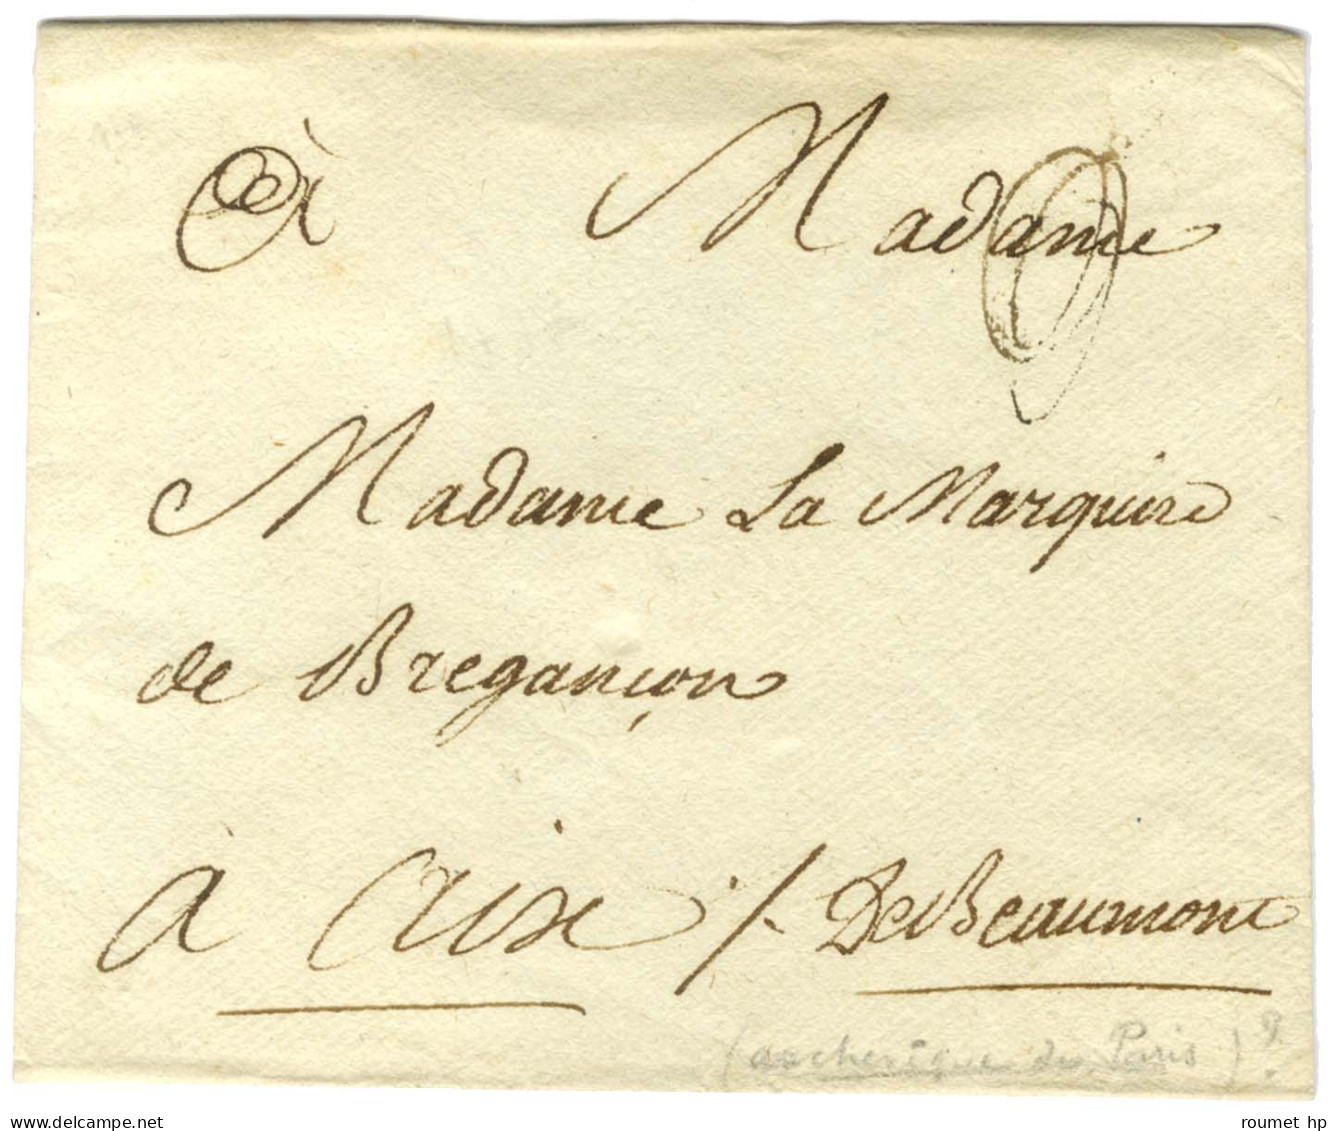 à Madame
Madame La Marquise
de Bregançon
à Aix /. De Beaumont
(archevêque de Paris) ?
delcampe.net
roumet hp